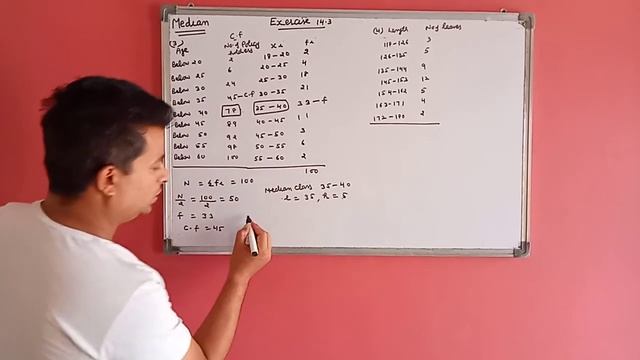 Median Exercise 14.3
(3.) c.f
Age No of Policy xi fi
holders
Below 20 2 18-20 2
Below 25 6 20-25 4
Below 30 24 25-30 18
Below 35 45-c.f 30-35 21
Below 40 78 35-40 33-f
Below 45 89 40-45 11
Below 50 92 45-50 3
Below 55 98 50-55 6
Below 60 100 55-60 2
100
N = Σfi = 100
N/2 = 100/2 = 50
f = 33
C.f = 45
Median class 35-40
l = 35, h = 5
(4) Length No of leaves
118-126 3
126-135 5
135-144 9
145-153 12
154-162 5
163-171 4
172-180 2